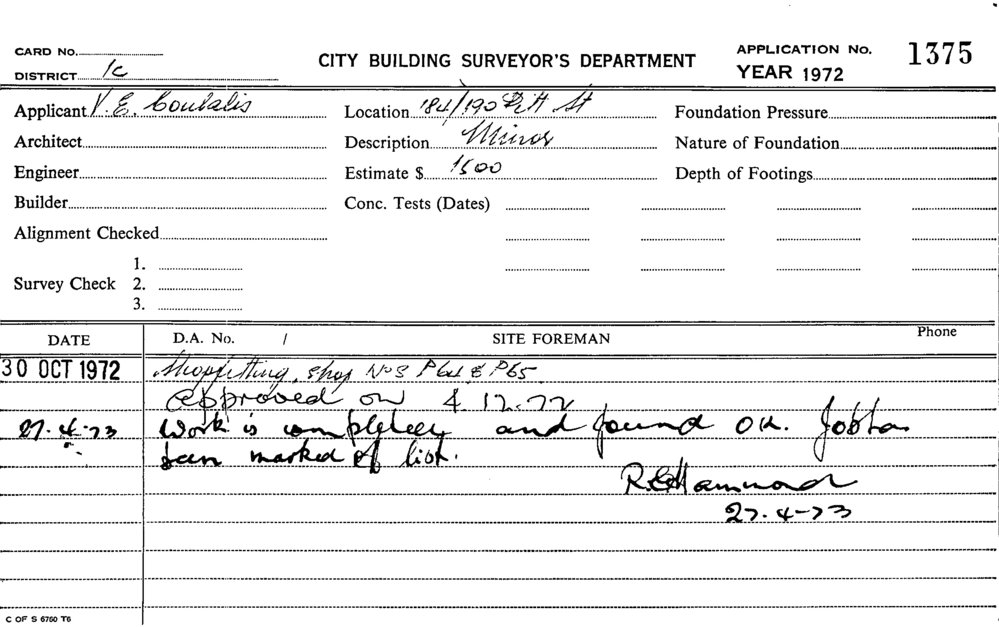 CARD No.
DISTRICT 1c
CITY BUILDING SURVEYOR'S DEPARTMENT
APPLICATION No. 1375
YEAR 1972
Applicant V. E. Coulalis
Location 184/190 Pitt St
Foundation Pressure
Architect
Description Minor
Nature of Foundation
Engineer
Estimate $ 1500
Depth of Footings
Builder
Conc. Tests (Dates)
Alignment Checked
Survey Check
1.
2.
3.
DATE
D.A. No. /
SITE FOREMAN
Phone
30 OCT 1972 Shopfitting, shop Nos P64 & P65
approved on 4.12.72
27.4.73 Work is completely and found OK. Job has
been marked of list.
R.C. Hammond
27.4-73
C OF S 6760 T6